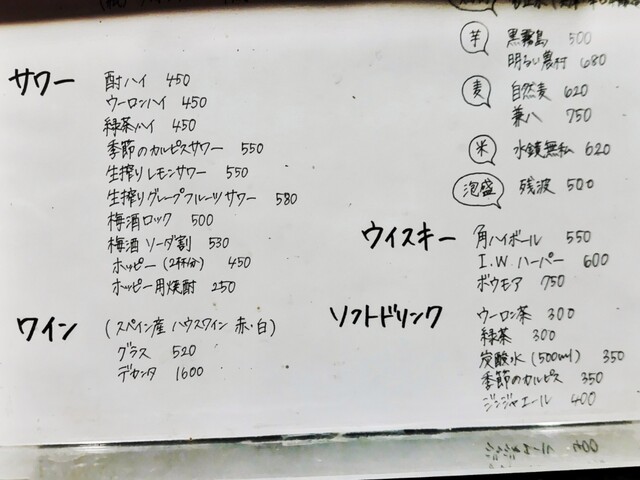 サワー
酎ハイ 450
ウーロンハイ 450
緑茶ハイ 450
季節のカルピスサワー 550
生搾りレモンサワー 550
生搾りグレープフルーツサワー 580
梅酒ロック 500
梅酒ソーダ割 530
ホッピー(2杯分) 450
ホッピー用焼酎 250
ワイン
(スペイン産 ハウスワイン 赤・白)
グラス 520
デカンタ 1600
芋 黒霧島 500
明るい農村 680
麦 自然麦 620
兼八 750
米 水鏡無私 620
泡盛 残波 500
ウイスキー
角ハイボール 550
I.W.ハーパー 600
ボウモア 750
ソフトドリンク
ウーロン茶 300
緑茶 300
炭酸水(500ml) 350
季節のカルピス 350
ジンジャエール 400